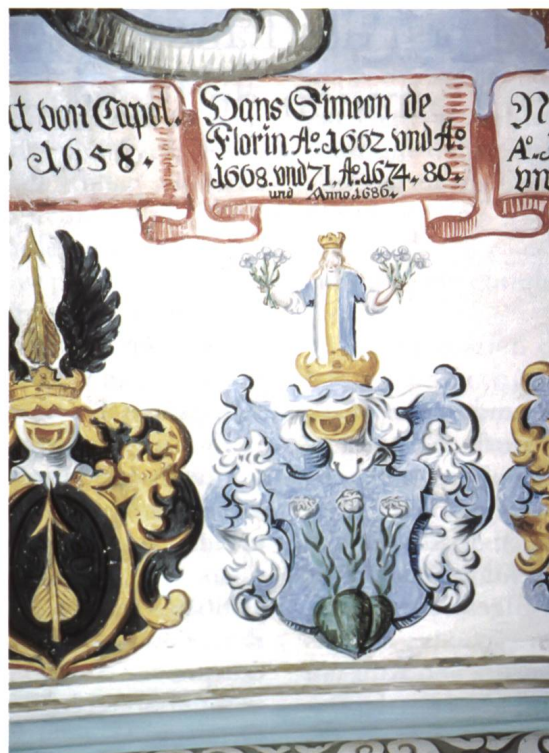 tt von Capol.
1658.
Hans Simeon de
Florin Aº. 1662. vnd Aº.
1668. vnd 71. Aº. 1674. 80.
und Anno 1686.
N
Aº
vn